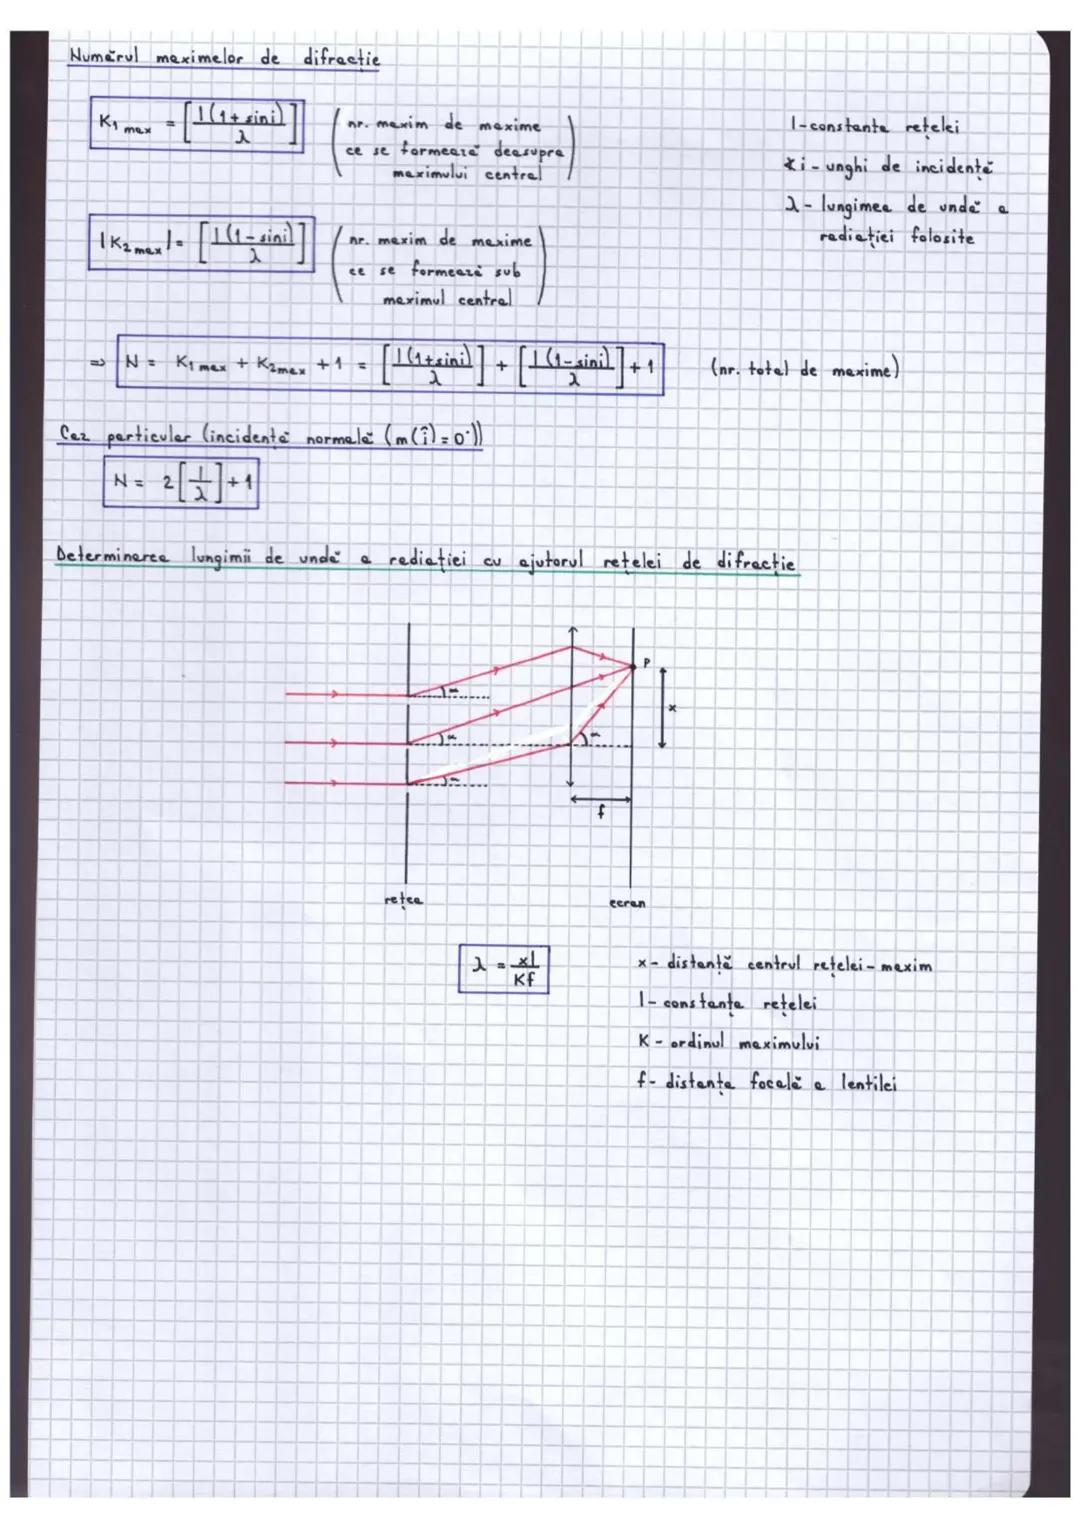 Numărul maximelor de difracție
K₁ max = [l(1+sini)/λ]
(nr. maxim de maxime
ce se formează deasupra
maximului central)
l-constanta rețelei
∢i - unghi de incidență
λ - lungimea de undă a
radiației folosite
|K₂ max| = [l(1-sini)/λ]
(nr. maxim de maxime
ce se formează sub
maximul central)
=> N = K₁ max + K₂ max + 1 = [l(1+sini)/λ] + [l(1-sini)/λ] + 1 (nr. total de maxime)
Caz particular (incidență normală (m(î)=0°))
N = 2[l/λ]+1
Determinarea lungimii de undă a radiației cu ajutorul rețelei de difracție
P
α
x
α
α
α
f
rețea
ecran
λ = xl/Kf
x - distanță centrul rețelei - maxim
l - constanta rețelei
K - ordinul maximului
f - distanța focală a lentilei